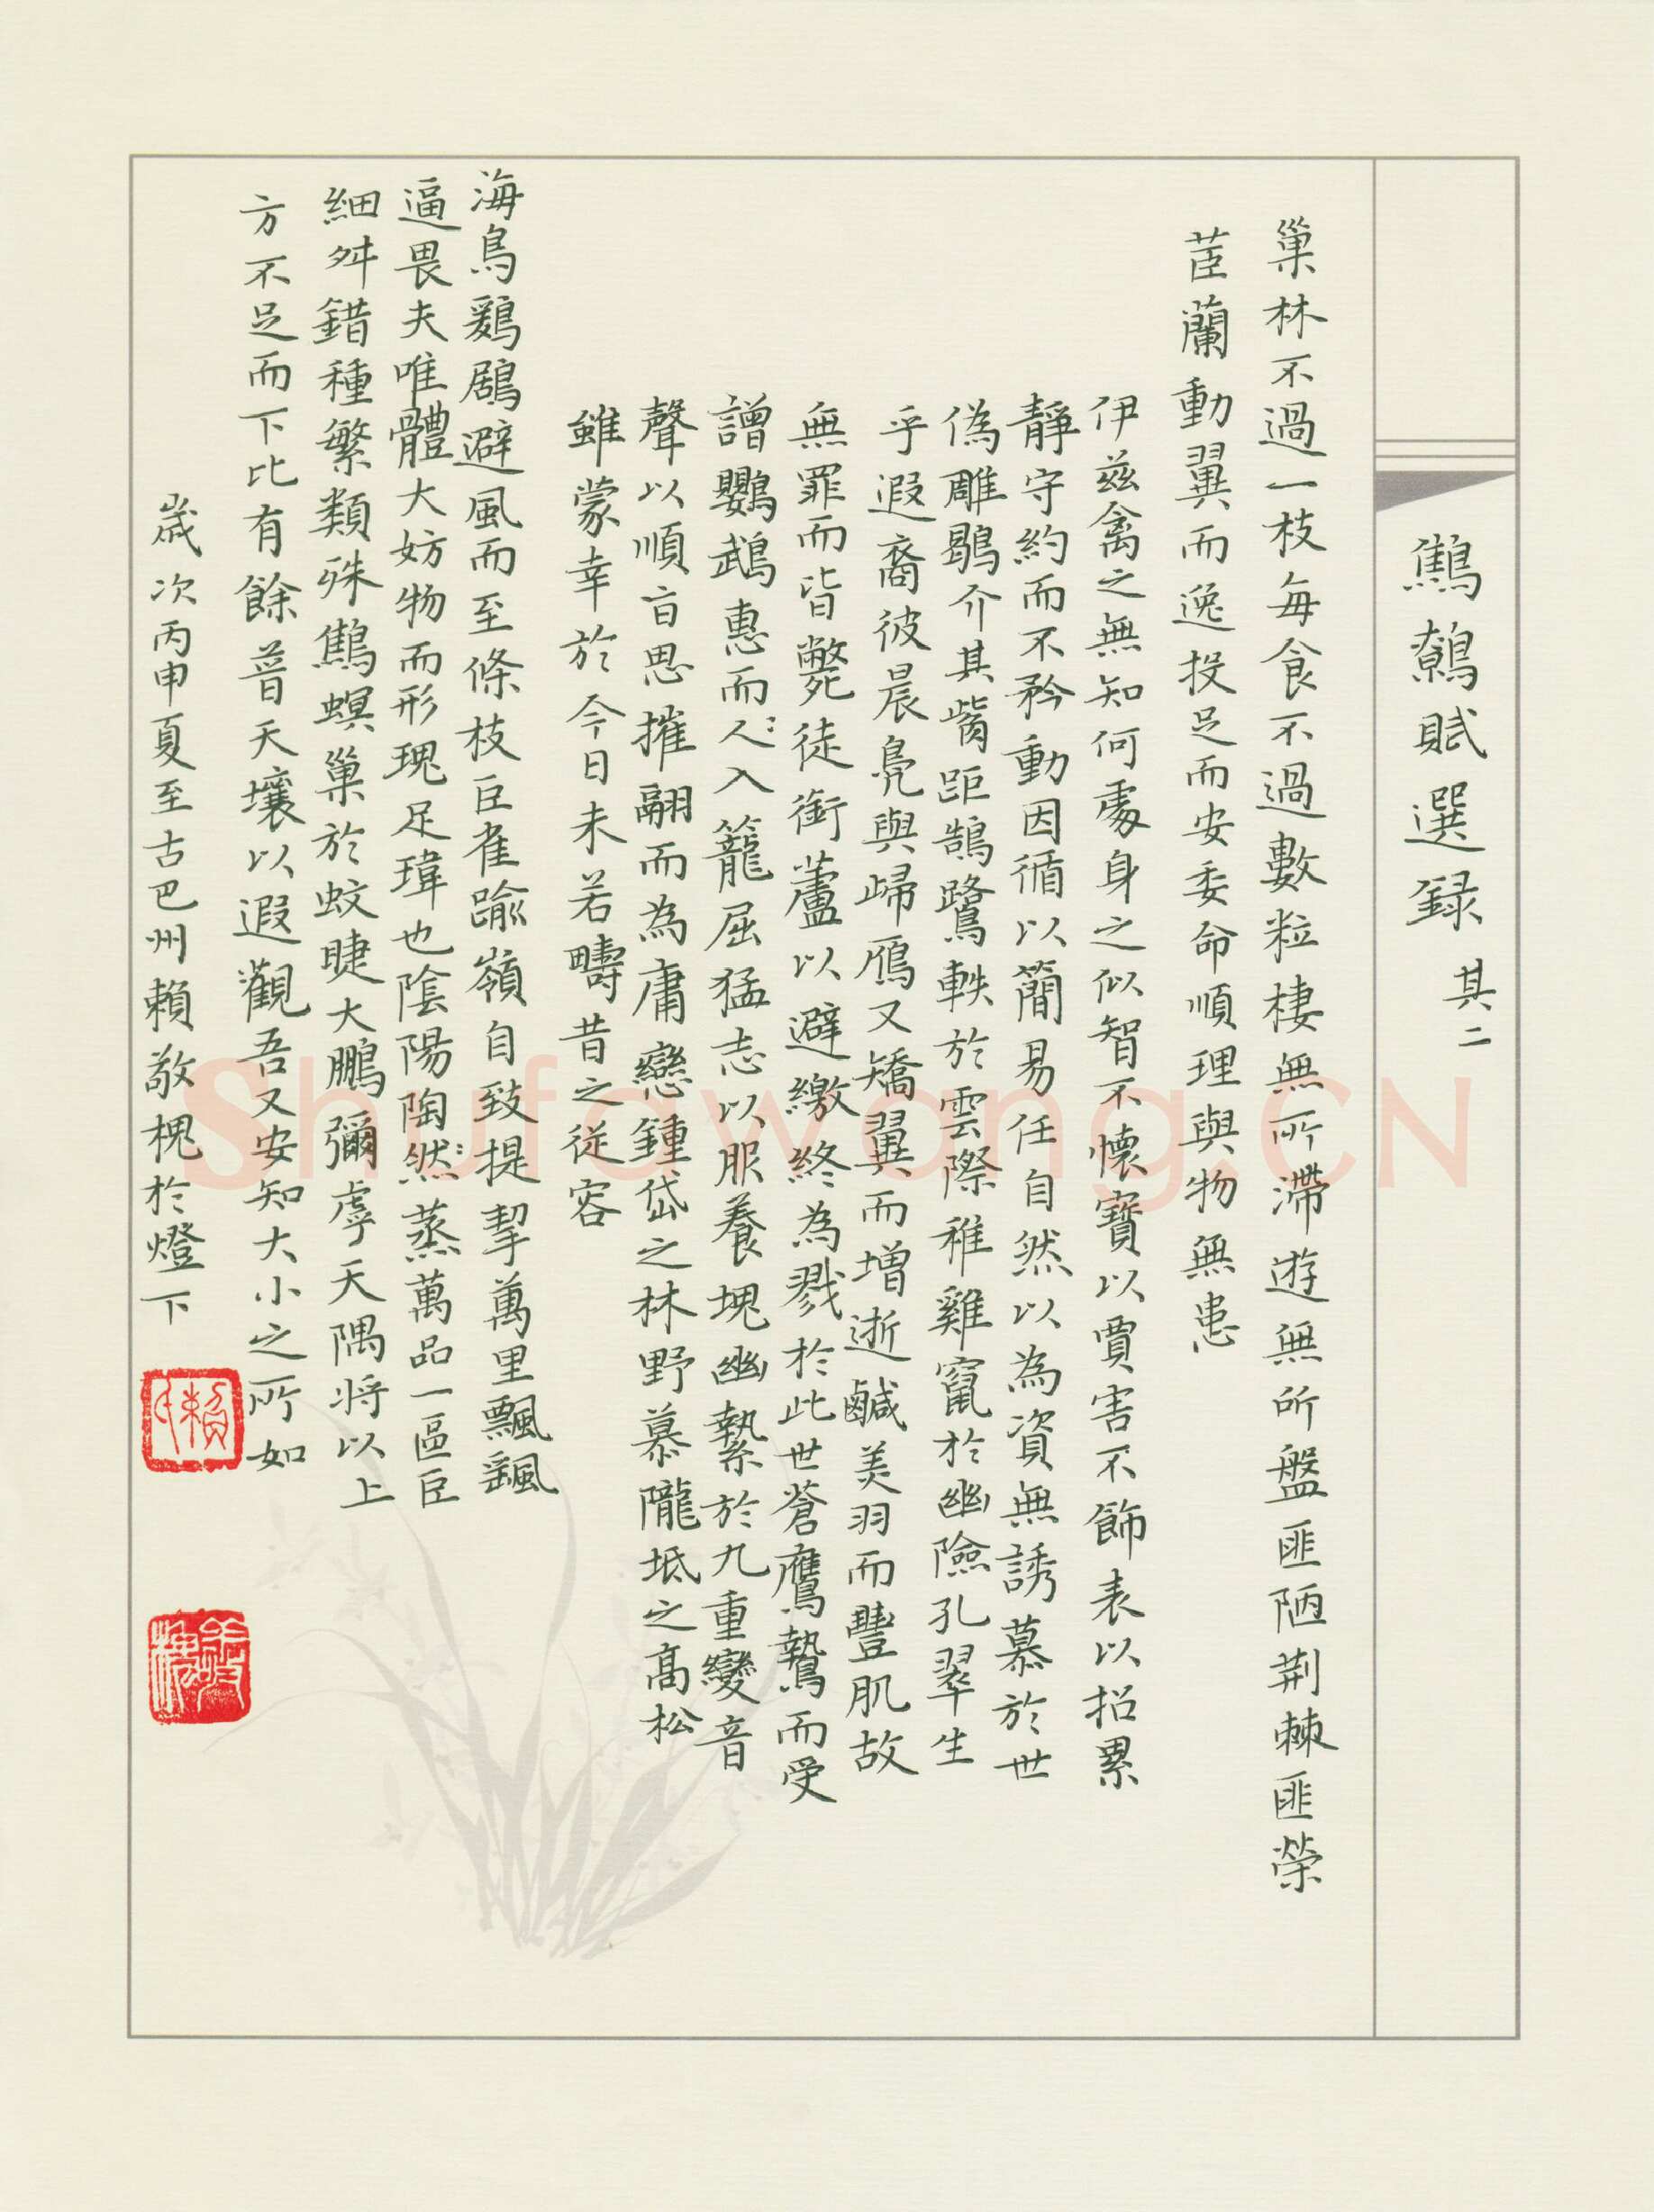 鷦鷯賦選録 其二
巢林不過一枝每食不過數粒棲無所滯遊無所盤匪陋荆棘匪榮
茝蘭動翼而逸投足而安委命順理與物無患
伊兹禽之無知何處身之似智不懷寶以賈害不飾表以招累
靜守約而不矜動因循以簡易任自然以為資無誘慕於世
偽雕鶡介其觜距鵠鷺軼於雲際稚雞竄於幽險孔翠生
乎遐裔彼晨鳧與歸鴈又矯翼而增逝鹹美羽而豐肌故
無罪而皆斃徒銜蘆以避繳終為戮於此世蒼鷹鷙而受
譄鸚鵡惠而人入籠屈猛志以服養塊幽縶於九重變音
聲以順㫖思摧翮而為庸戀鍾岱之林野慕隴坻之高松
雖蒙幸於今日未若疇昔之従容
海鳥鶢鶋避風而至條枝巨雀踰嶺自致提挈萬里飄颻
逼畏夫唯體大妨物而形瑰足瑋也陰陽陶然蒸萬品一區巨
細舛錯種繁類殊鷦螟巢於蚊睫大鵬彌虖天隅将以上
方不足而下比有餘普天壤以遐觀吾又安知大小之所如
歲次丙申夏至古巴州賴敬槐於燈下
Shufawang.CN